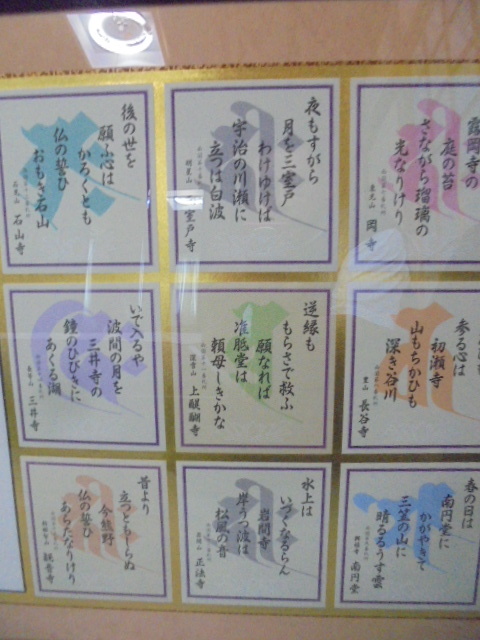 露岡寺の
庭の苔
さながら瑠璃の
光なりけり
東光山 岡寺
夜もすがら
月を三室戸
わけゆけば
宇治の川瀬に
立つは白波
明星山 三室戸寺
後の世を
願ふ心は
かろくとも
仏の誓ひ
おもき石山
石光山 石山寺
参る心は
初瀬寺
山もちかひも
深き谷川
豊山 長谷寺
逆縁も
もらさで救ふ
願なれば
准胝堂は
頼母しきかな
深雪山 上醍醐寺
いで入るや
波間の月を
三井寺の
鐘のひびきに
あくる湖
長等山 三井寺
春の日は
南円堂に
かがやきて
三笠の山に
晴るるうす雲
興福寺 南円堂
水上は
いづくなるらん
岩間寺
岸うつ波は
松風の音
岩間山 正法寺
昔より
立つともしらぬ
今熊野
仏の誓ひ
あらたなりけり
新那智山 観音寺